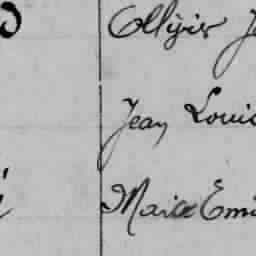 Ollyir J
Jean Louis
Marie Emi